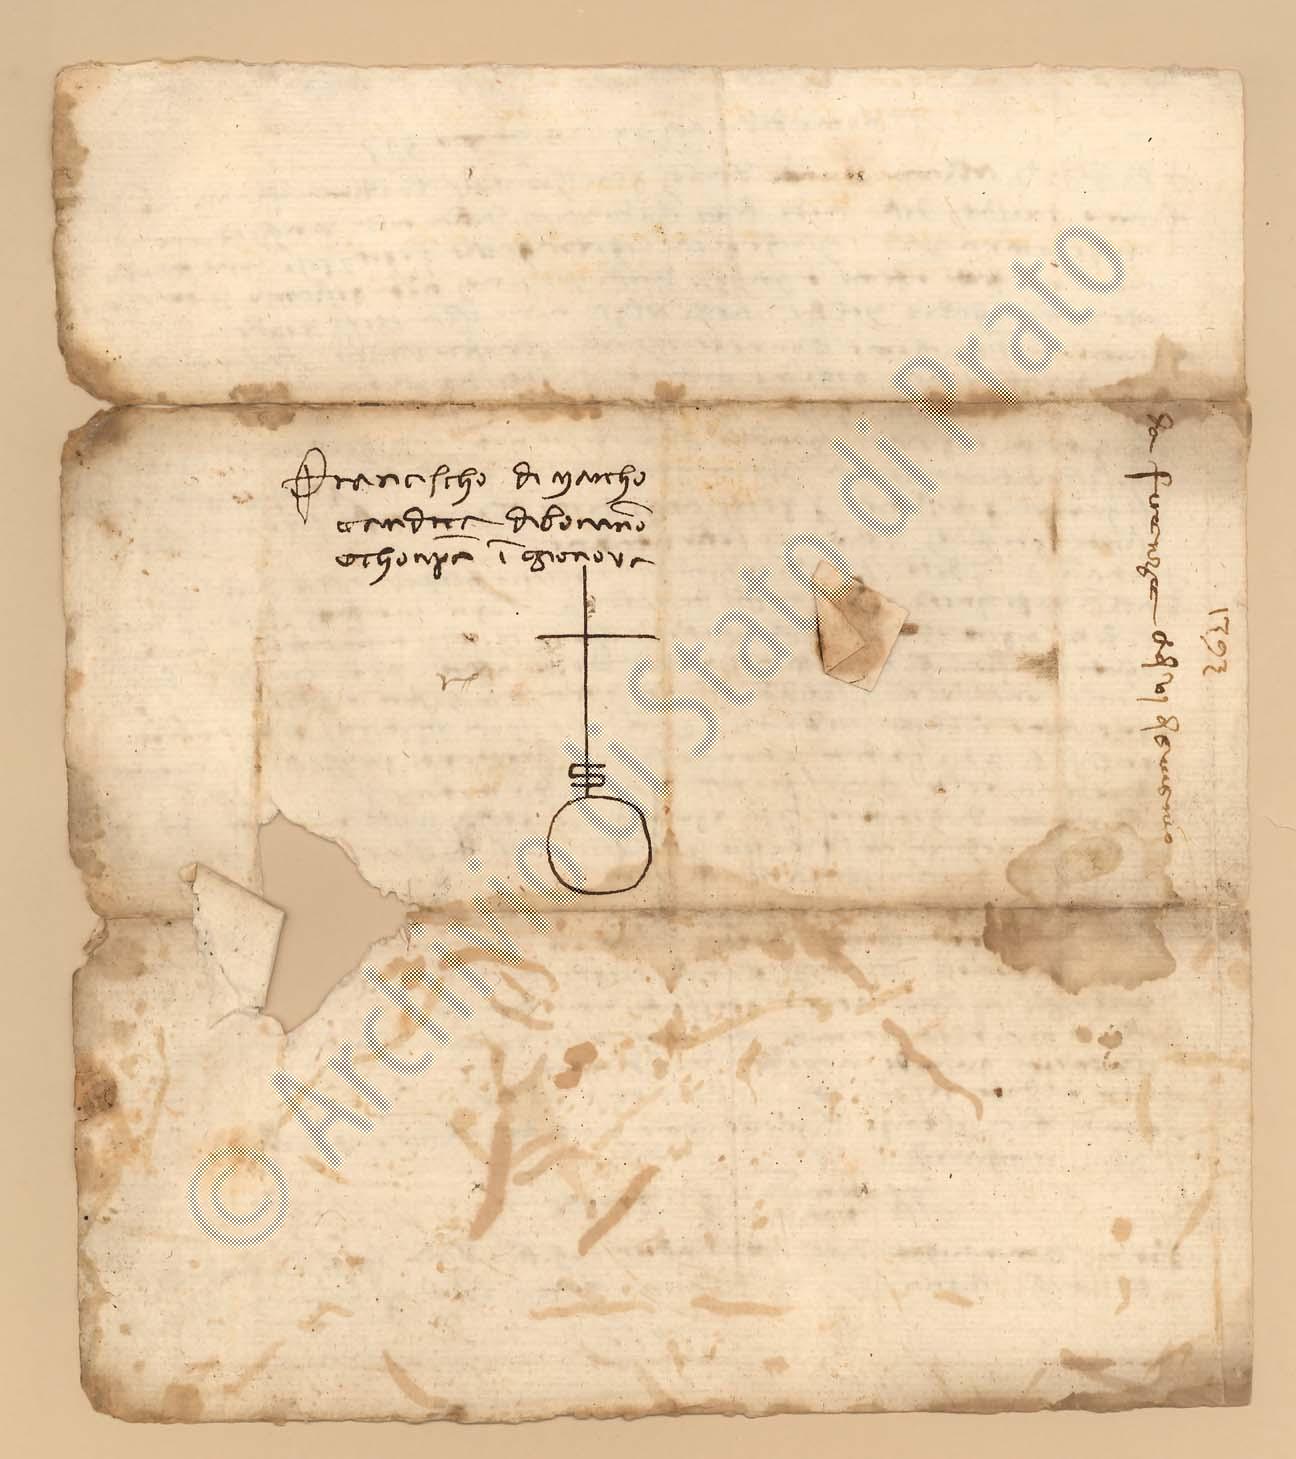 Francischo di Marcho
e andrea di bonanno
e chonpa in gienova
da firenze
1393
© Archivio di Stato di Prato